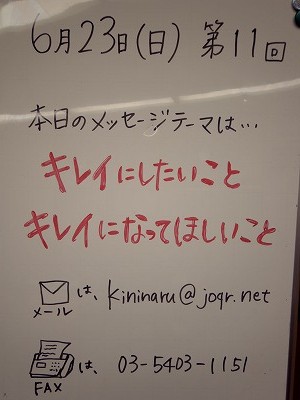 6月23日(日) 第11回
本日のメッセージテーマは…
キレイにしたいこと
キレイになってほしいこと
メールは、kininaru@joqr.net
FAXは、03-5403-1151